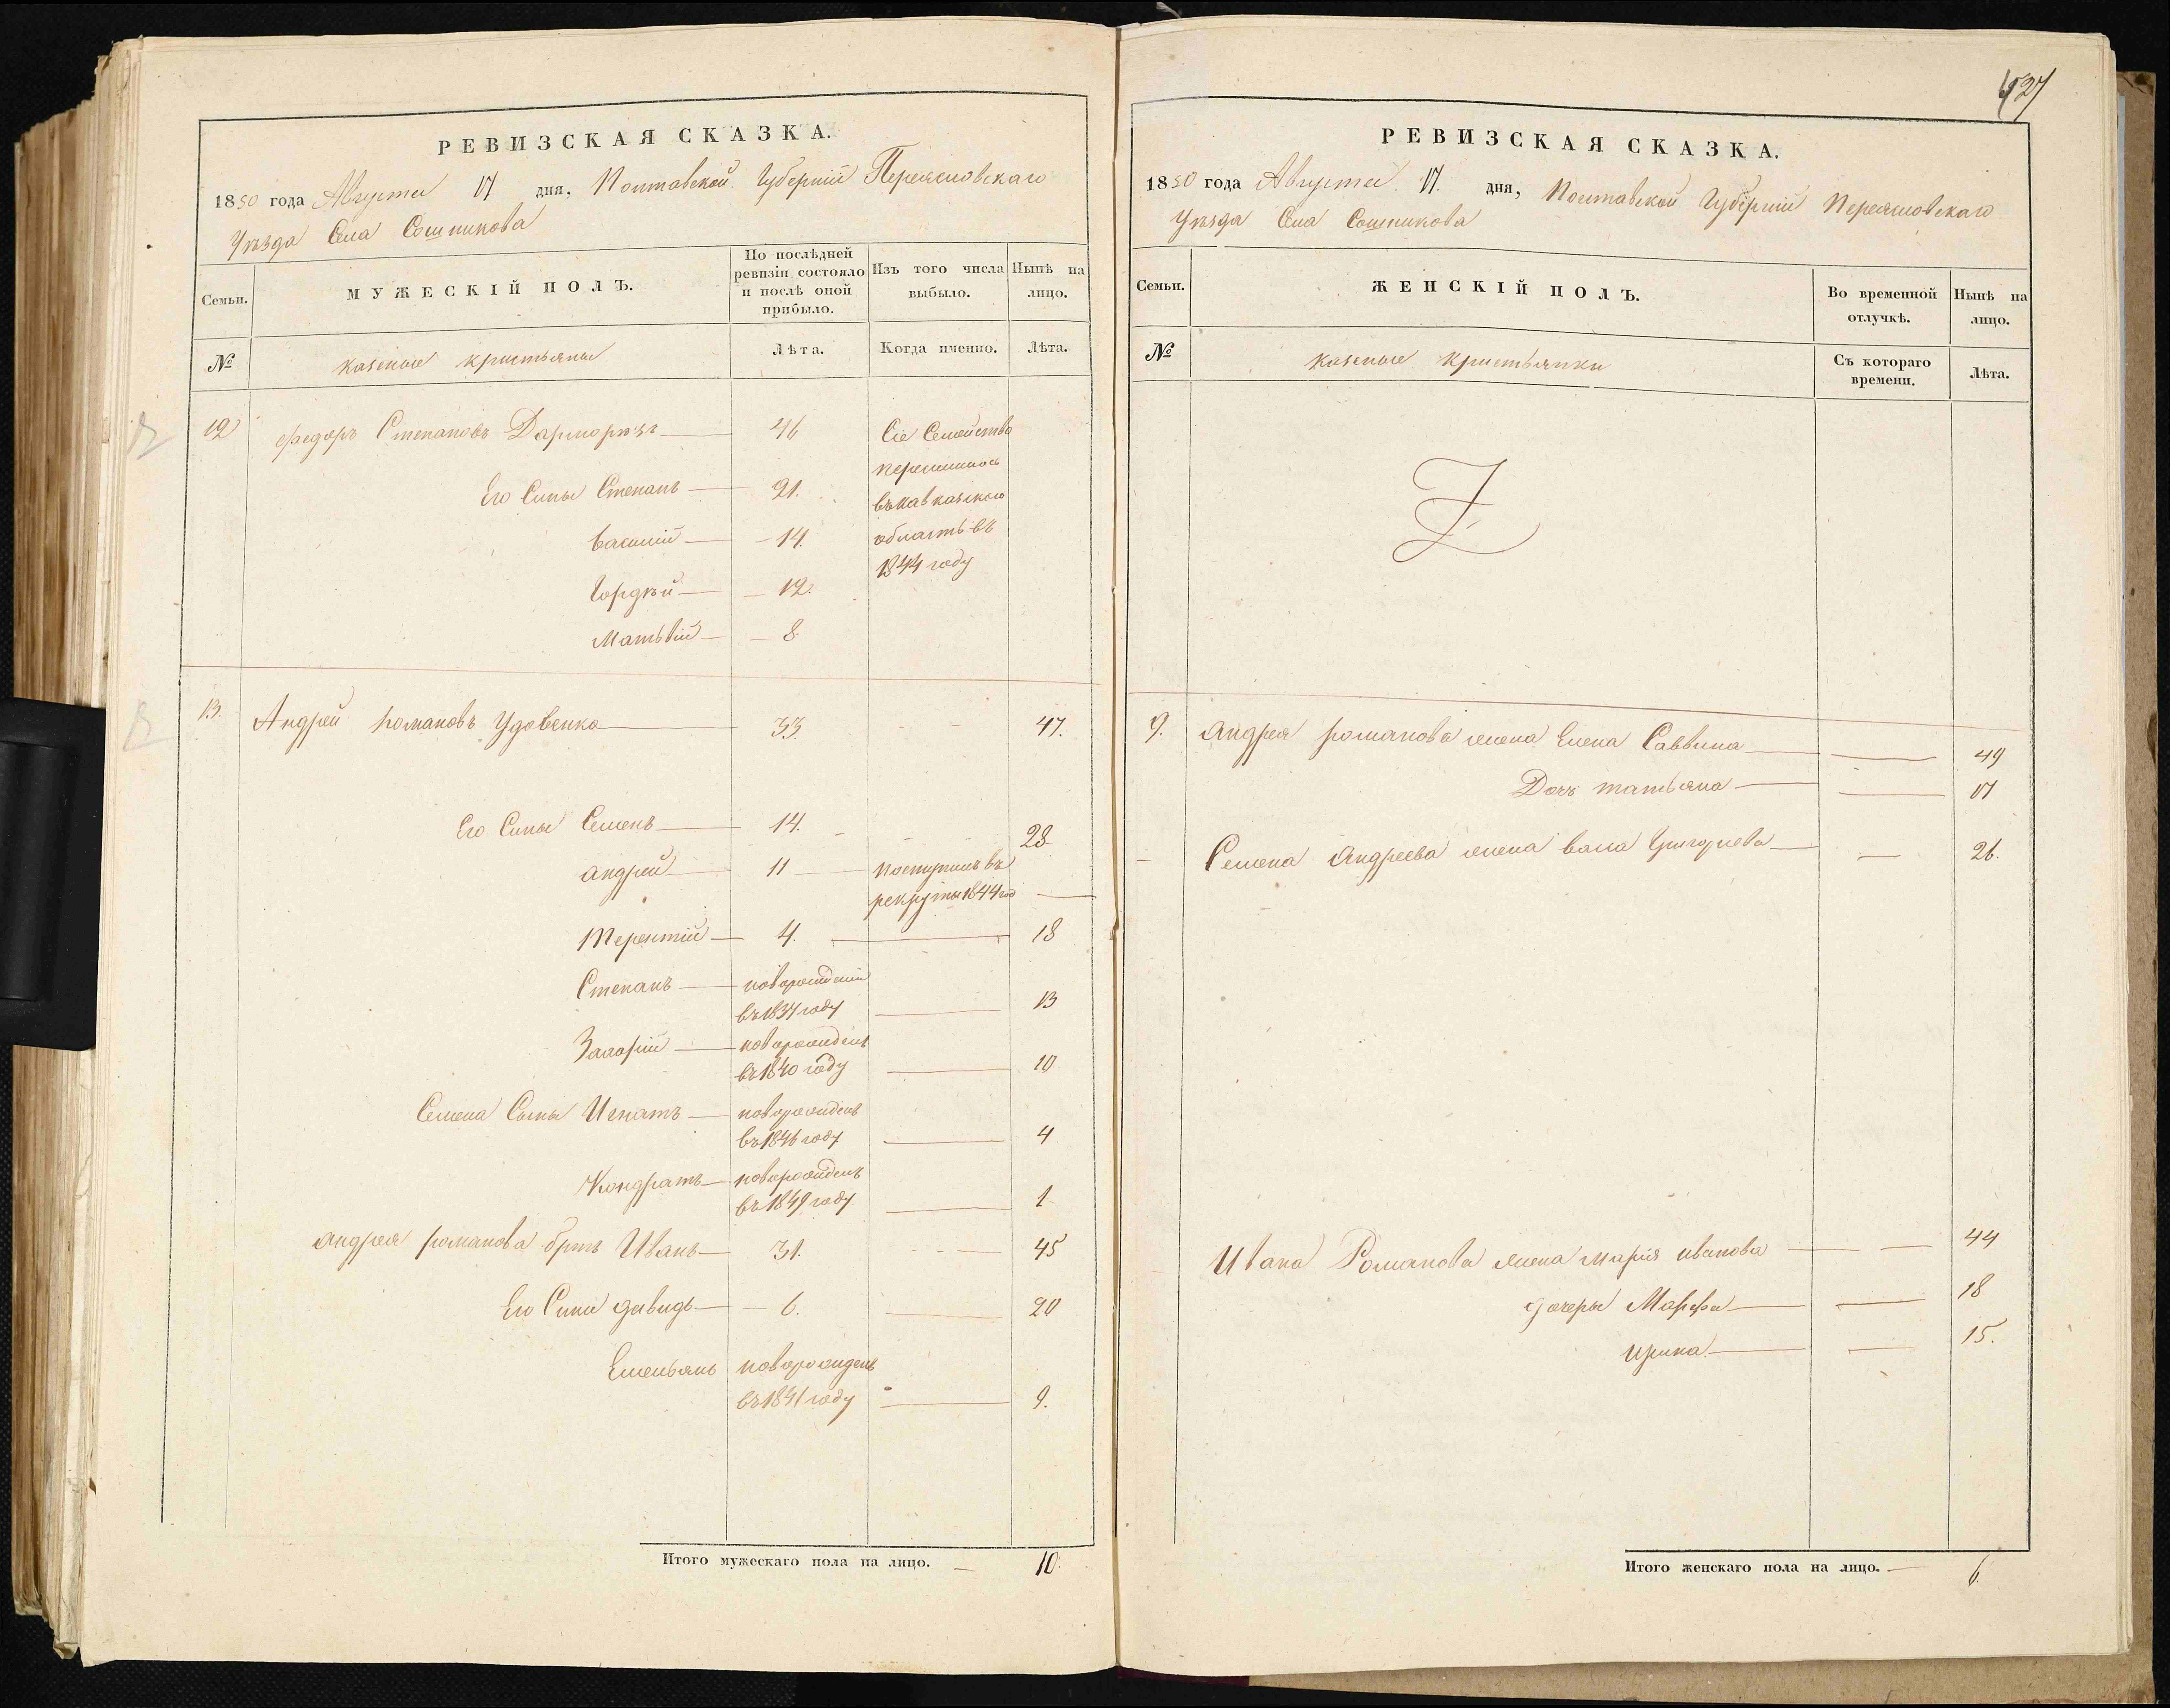 РЕВИЗСКАЯ СКАЗКА.
1850 года Августа 17 дня, Полтавской Губерніи Переясловскаго
Уѣзда Села Сошникова
Семьи.
МУЖЕСКІЙ ПОЛЪ.
По послѣдней ревизіи состояло и послѣ оной прибыло.
Изъ того числа выбыло.
Нынѣ на лицо.
№
казеные кристьяны
Лѣта.
Когда именно.
Лѣта.
12 Федоръ Степановъ 46 Сіе Семейство
переишлось
Его Сины Степанъ 21. въ кавказскою
Василій 14. область въ
1844 году
Гордѣй 12.
Матвій 8.
13. Андрей Романовъ Удовенко 33. 47.
Его Сины Семенъ 14. 28
Андрей 11 поступилъ въ
рекруты 1844 год
Терентій 4. 18
Степанъ новорожденій
въ 1837 году 13
Захарій новорожденъ
въ 1840 году 10
Семена Сыны Игнатъ новорожденъ
въ 1846 году 4
Кондратъ новорожденъ
въ 1849 году 1
Андрея Романова братъ Иванъ 31. 45
Его Сини Давидъ 6. 20
Емельянъ новорожденъ
въ 1841 году 9.
Итого мужескаго пола на лицо. 10.
427
РЕВИЗСКАЯ СКАЗКА.
1850 года Августа 17. дня, Полтавской Губерніи Переясловскаго
Уѣзда Села Сошникова
Семьи.
ЖЕНСКІЙ ПОЛЪ.
Во временной отлучкѣ.
Нынѣ на лицо.
№
казеные кристьянки
Съ котораго времени.
Лѣта.
9. Андрея Романова жена Елена Саввина 49
Дочъ Татьяна 17
Семена Андреева жена Васа Григориева 26.
Ивана Романова жена Марія Иванова 44
дочеры Марфа 18
Ирина 15.
Итого женскаго пола на лицо. 6.